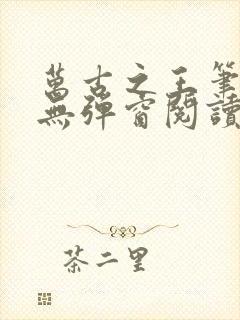 萬古之王筆
無彈窗閱讀
茶二里